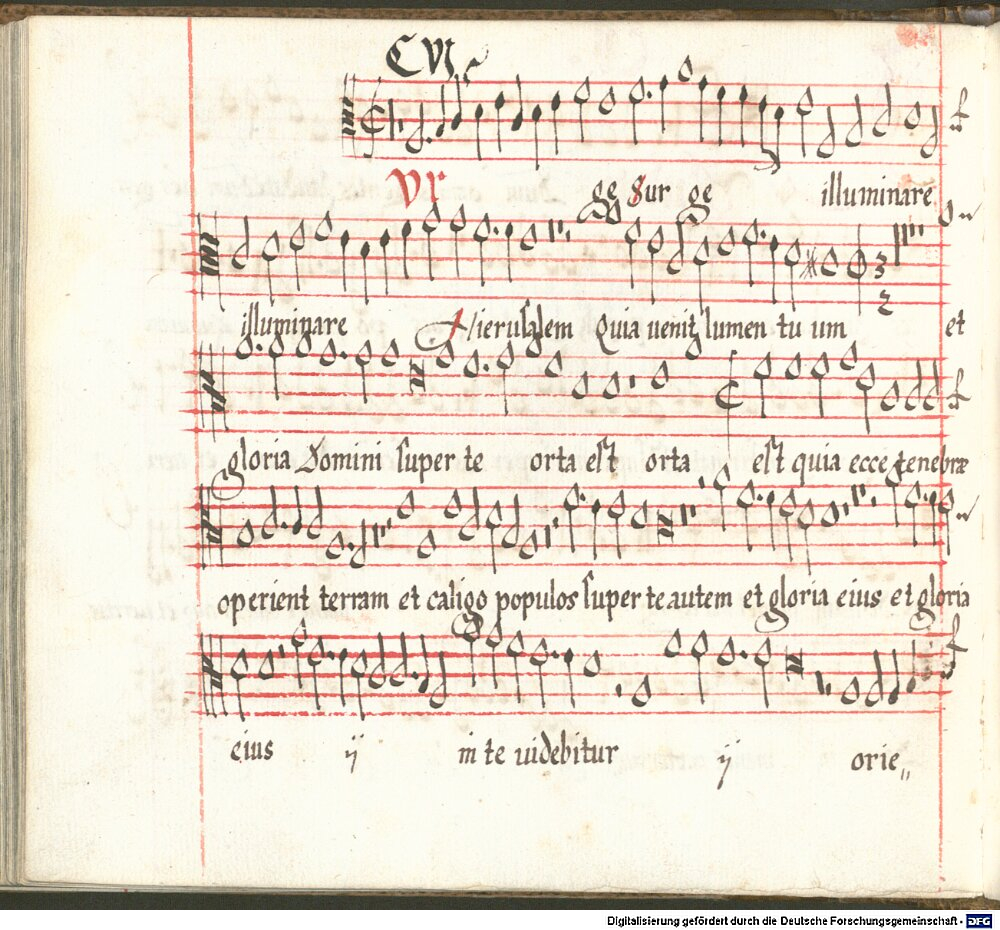 CVI
Vr ge Sur ge illuminare
illuminare Hierusalem Quia uenit lumen tu um et
gloria Domini super te orta est orta est quia ecce tenebræ
operient terram et caligo populos super te autem et gloria eius et gloria
eius ij in te uidebitur ij orie„
Digitalisierung gefördert durch die Deutsche Forschungsgemeinschaft - DFG